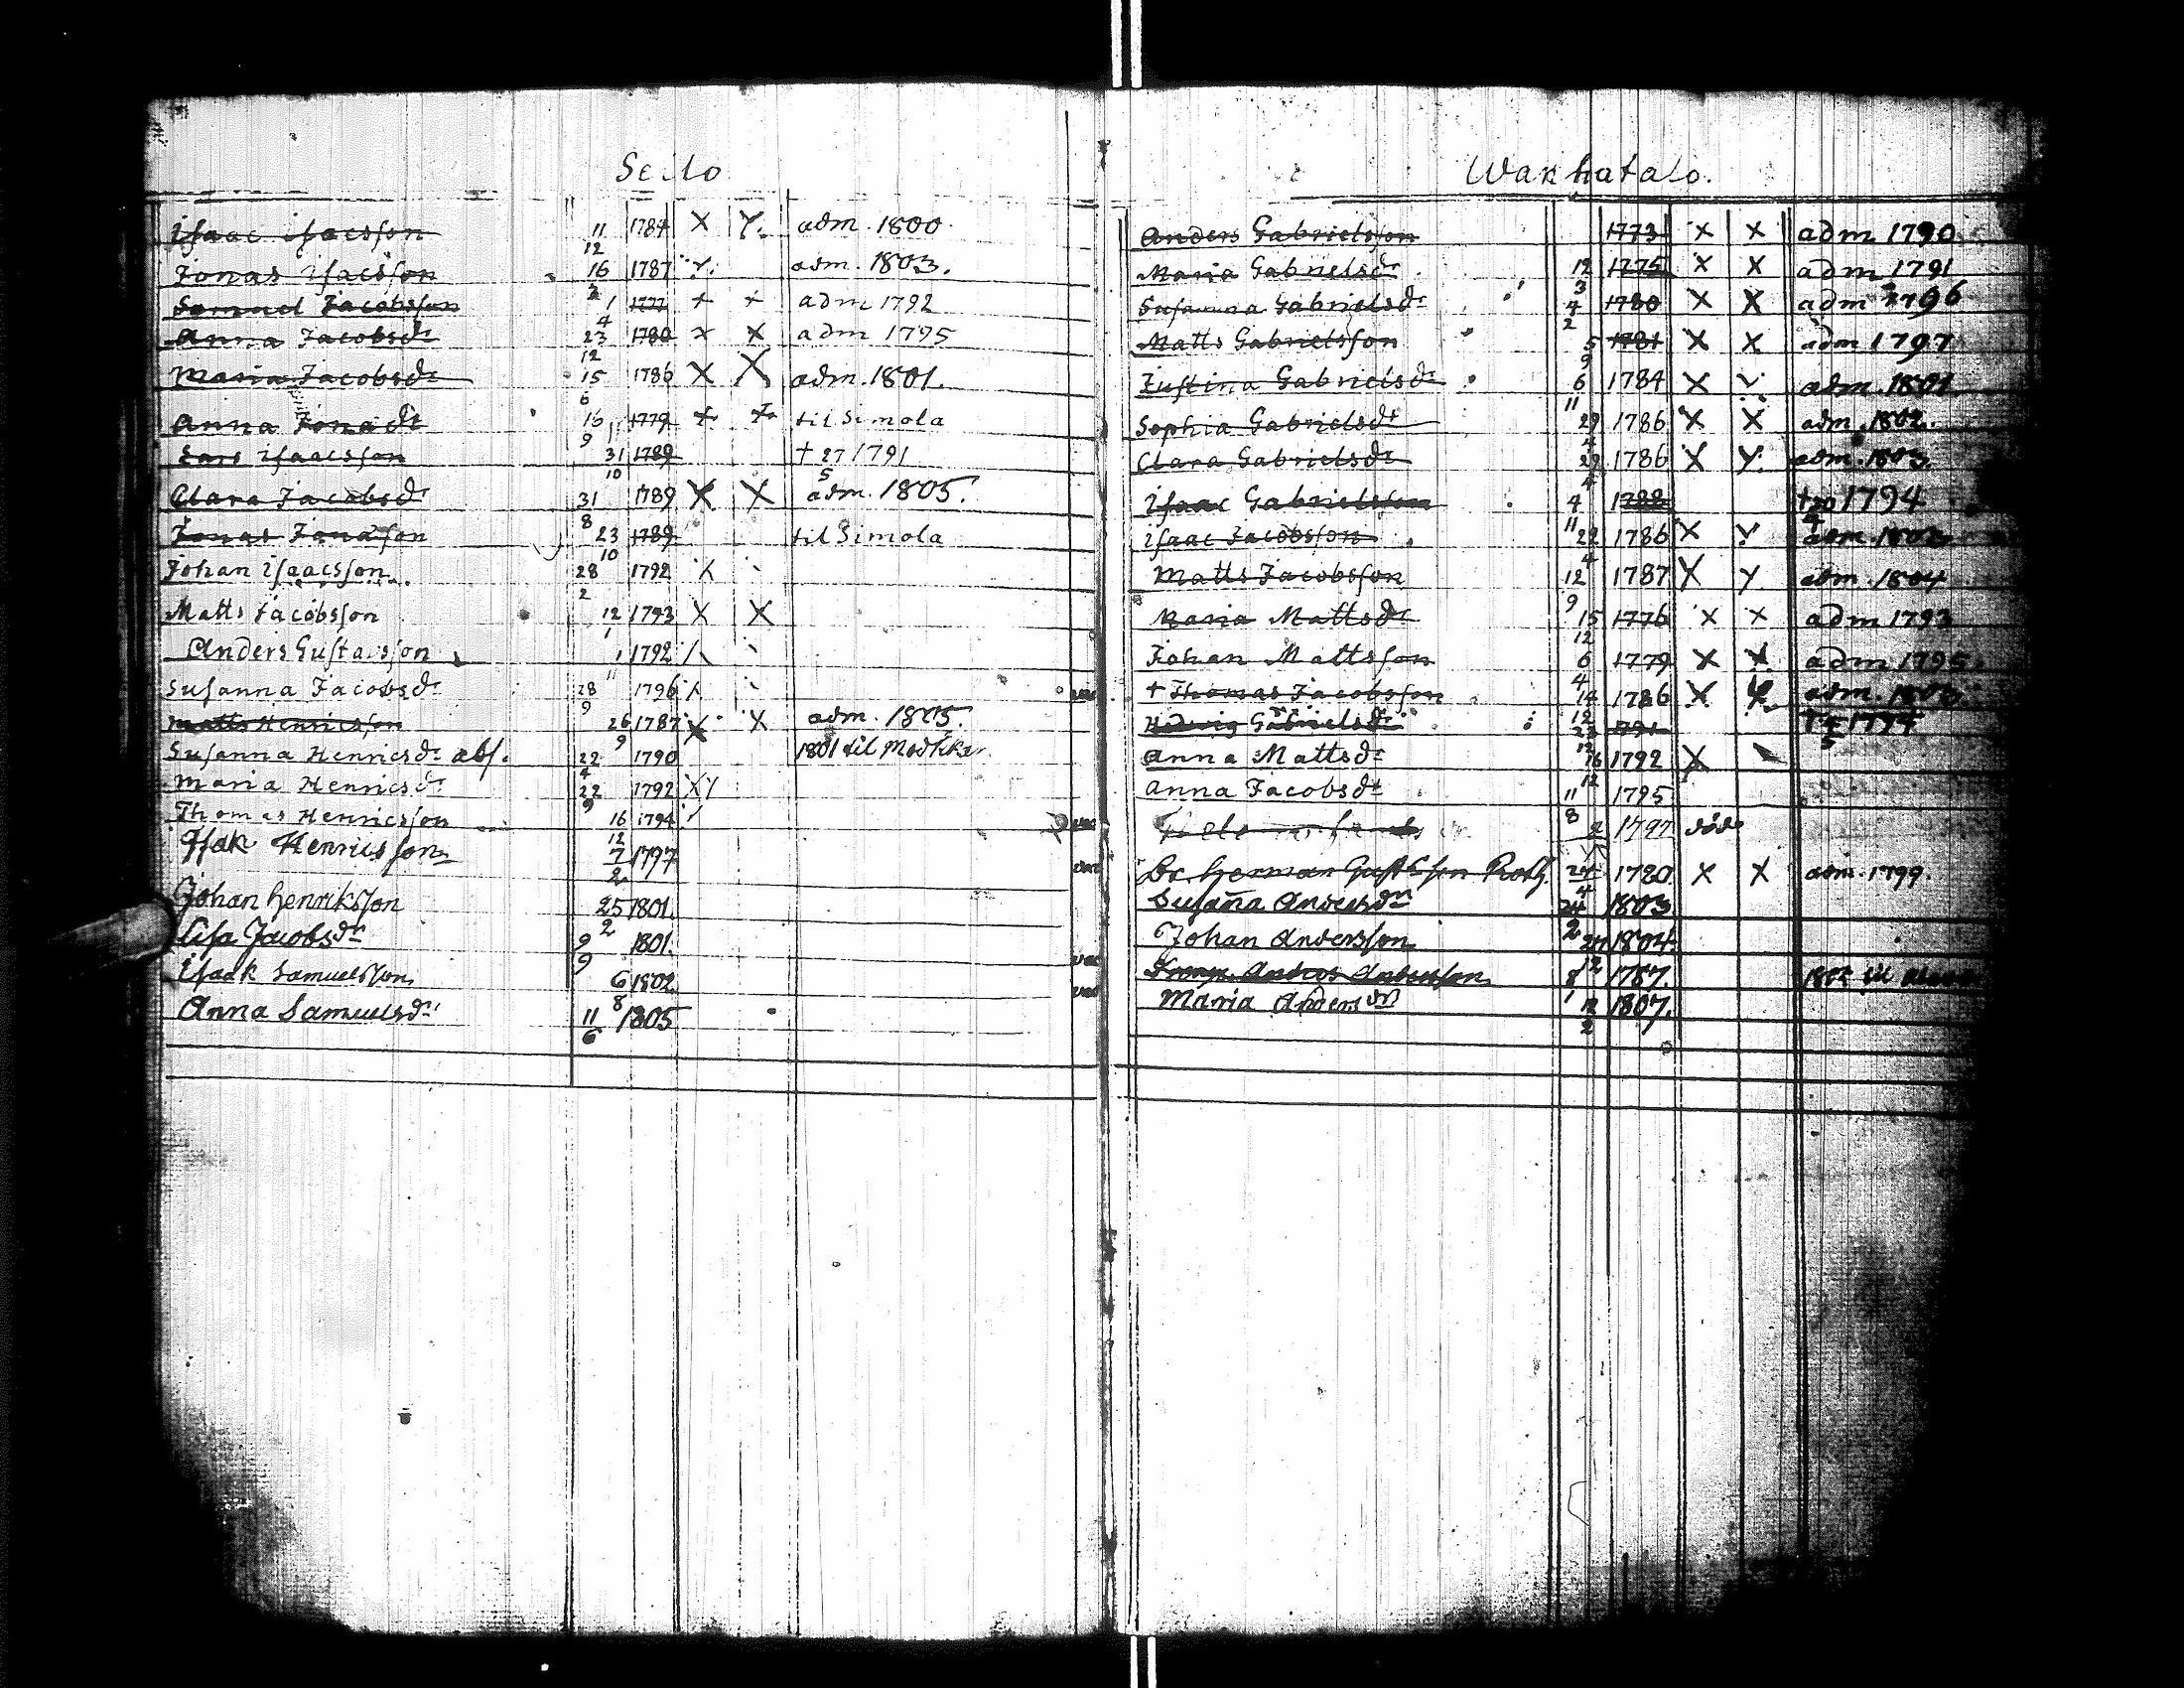 Seilo
Isaac Isacsson 11/12 1784 X Y. adm. 1800
Jonas Isacsson 16/2 1787 Y. adm. 1803.
Samuel Jacobsson 1/4 1777 + + adm 1792
Anna Jacobsdr 23/12 1780 x x adm 1795
Maria Jacobsdr 15/6 1786 X X adm. 1801.
Anna Jonædr 16/9 1779 + + til Simola
Lars Isaacsson 31/10 1789 † 27/5 1791
Clara Jacobsdr 31/8 1789 X X adm. 1805.
Jonas Jonæson 23/10 1789 til Simola
Johan Isaacsson 28/2 1792
Matts Jacobsson 12/1 1793 X X
Anders Gustafsson 1/11 1792
Susanna Jacobsdr 28/9 1796
Matts Henricsson 26/9 1787 X X adm. 1805.
Susanna Henricsdr abs. 22/4 1790 1801 til
Maria Henricsdr 22/9 1792 XY
Thomas Henricsson 16/12 1794
Isak Henricsson 7/2 1797
Johan Henriksson 25/2 1801.
Lisa Jacobsdr 9/9 1801.
Isaak Samuelsson 6/8 1802
Anna Samuelsdr 11/6 1805
Warhatalo.
Anders Gabrielsson 1773 x x adm 1790
Maria Gabrielsdr 12/3 1775 X X adm 1791
Susanna Gabrielsdr 4/2 1780 X X adm 1796
Matts Gabrielsson 5/9 1781 X X adm 1797
Justina Gabrielsdr 6/11 1784 X adm. 1801.
Sophia Gabrielsdr 29/4 1786 X X adm. 1802.
Clara Gabrielsdr 29/4 1786 X Y. adm. 1803.
Isaac Gabrielsson 4/11 1788 † 20/4 1794
Isaac Jacobsson 22/4 1786 X Y
Matts Jacobsson 12/9 1787 X Y adm. 1804
Maria Mattsdr 15/12 1776 x x adm 1793
Johan Mattsson 6/4 1779 X X adm 1795
† Thomas Jacobsson 14/12 1786 X adm.
Hedwig Gabrielsdr 23/12 1791 † 4/5 1794
Anna Mattsdr 16/12 1792 X
Anna Jacobsdr 11/8 1795
2 1797 död
Herman Gust. son Roth 24/4 1780 X X adm. 1799.
Susanna Andersdr 24/2 1803
Johan Andersson 24/12 1804.
Anders Andersson 8/1 1787. til
Maria Andersdr 12/2 1807.